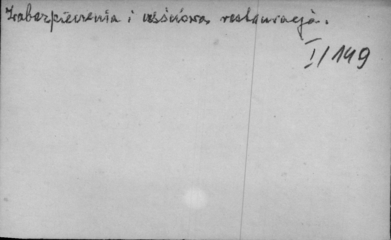 Zabezpieczenia i ościowa restauracja.
I/149